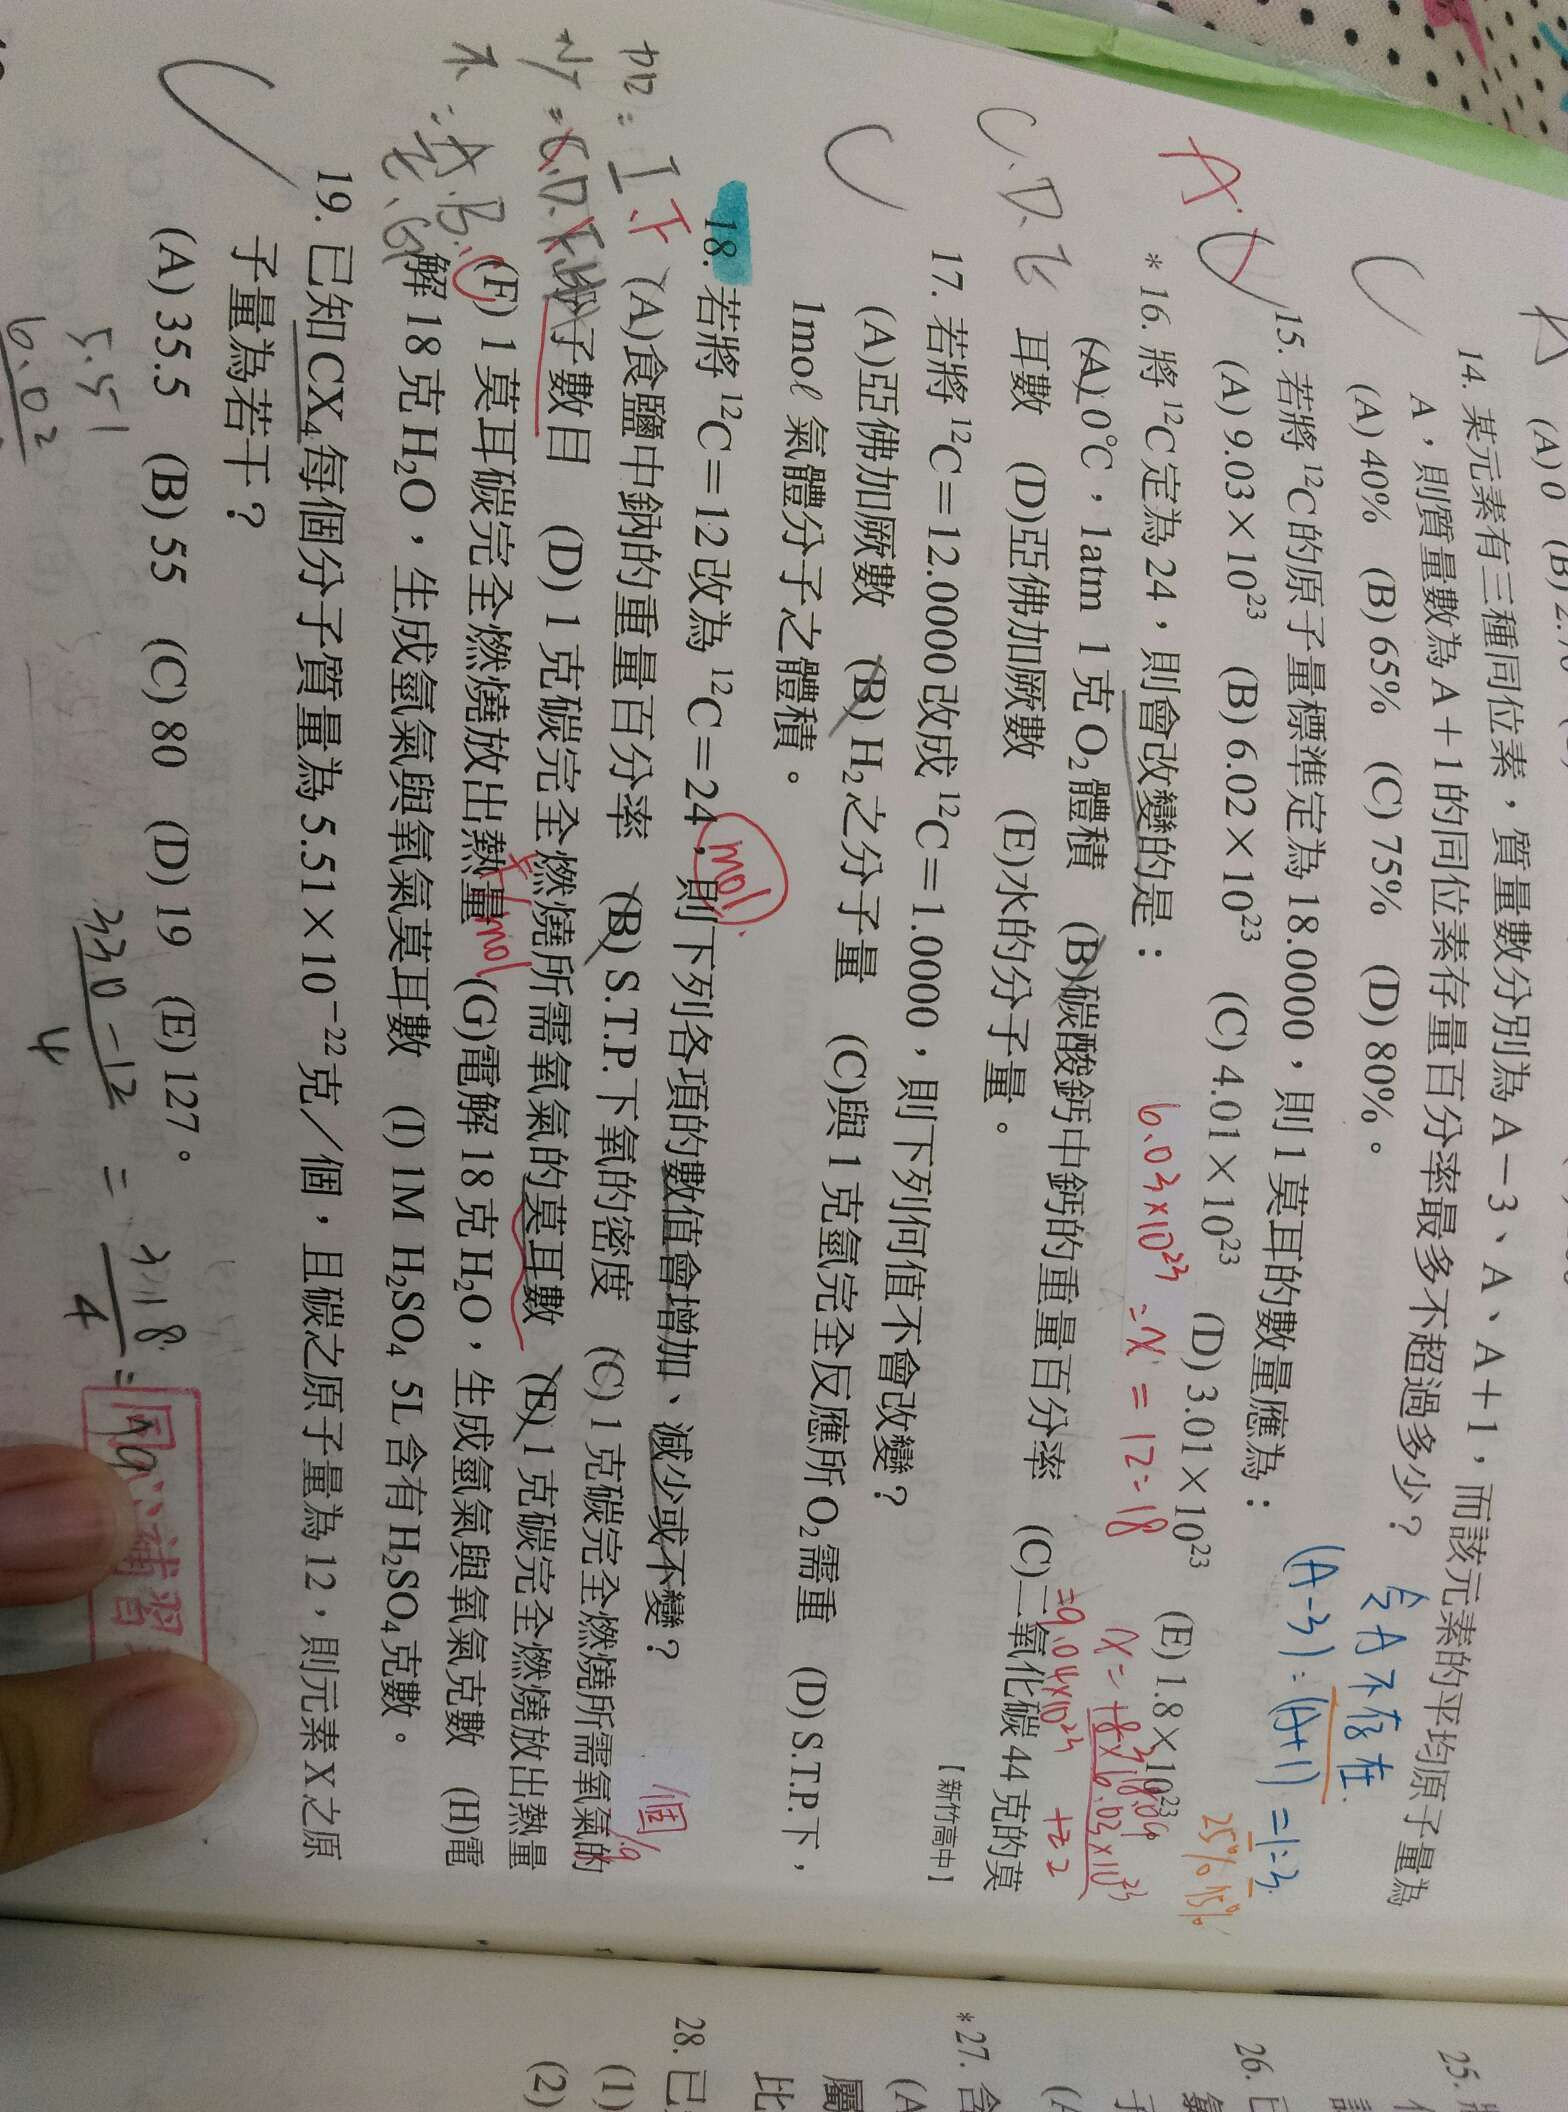 14. 某元素有三種同位素，質量數分別為A－3、A、A＋1，而該元素的平均原子量為
A，則質量數為A＋1的同位素存量百分率最多不超過多少？
(A) 40% (B) 65% (C) 75% (D) 80%。
令A不存在
(A-3):(A+1)=1:3
25% 75%
15. 若將¹²C的原子量標準定為18.0000，則1莫耳的數量應為：
(A) 9.03×10²³ (B) 6.02×10²³ (C) 4.01×10²³ (D) 3.01×10²³ (E) 1.8×10²³
6.02×10²³ = x = 12:18
*16. 將¹²C定為24，則會改變的是：
(A) 0℃，1atm 1克O₂體積 (B)碳酸鈣中鈣的重量百分率 (C)二氧化碳44克的莫
耳數 (D)亞佛加厥數 (E)水的分子量。
【新竹高中】
C.D.E
17. 若將¹²C＝12.0000改成¹²C＝1.0000，則下列何值不會改變？
(A)亞佛加厥數 (B) H₂之分子量 (C)與1克氫完全反應所O₂需重 (D) S.T.P.下，
1molℓ氣體分子之體積。
mol
18. 若將¹²C＝12改為¹²C＝24，則下列各項的數值會增加、減少或不變？
(A)食鹽中鈉的重量百分率 (B) S.T.P.下氧的密度 (C) 1克碳完全燃燒所需氧氣的
分子數目 (D) 1克碳完全燃燒所需氧氣的莫耳數 (E) 1克碳完全燃燒放出熱量
(F) 1莫耳碳完全燃燒放出熱量 (G)電解18克H₂O，生成氫氣與氧氣克數 (H)電
解18克H₂O，生成氫氣與氧氣莫耳數 (I) 1M H₂SO₄ 5L含有H₂SO₄克數。
個/g
/mol
19. 已知CX₄每個分子質量為5.51×10⁻²²克／個，且碳之原子量為12，則元素X之原
子量為若干？
(A) 35.5 (B) 55 (C) 80 (D) 19 (E) 127。
5.51
6.02
330-12
4
=
318
4
=
25.
26.
*27. 含
屬
比
28. 已
(1)
(2)